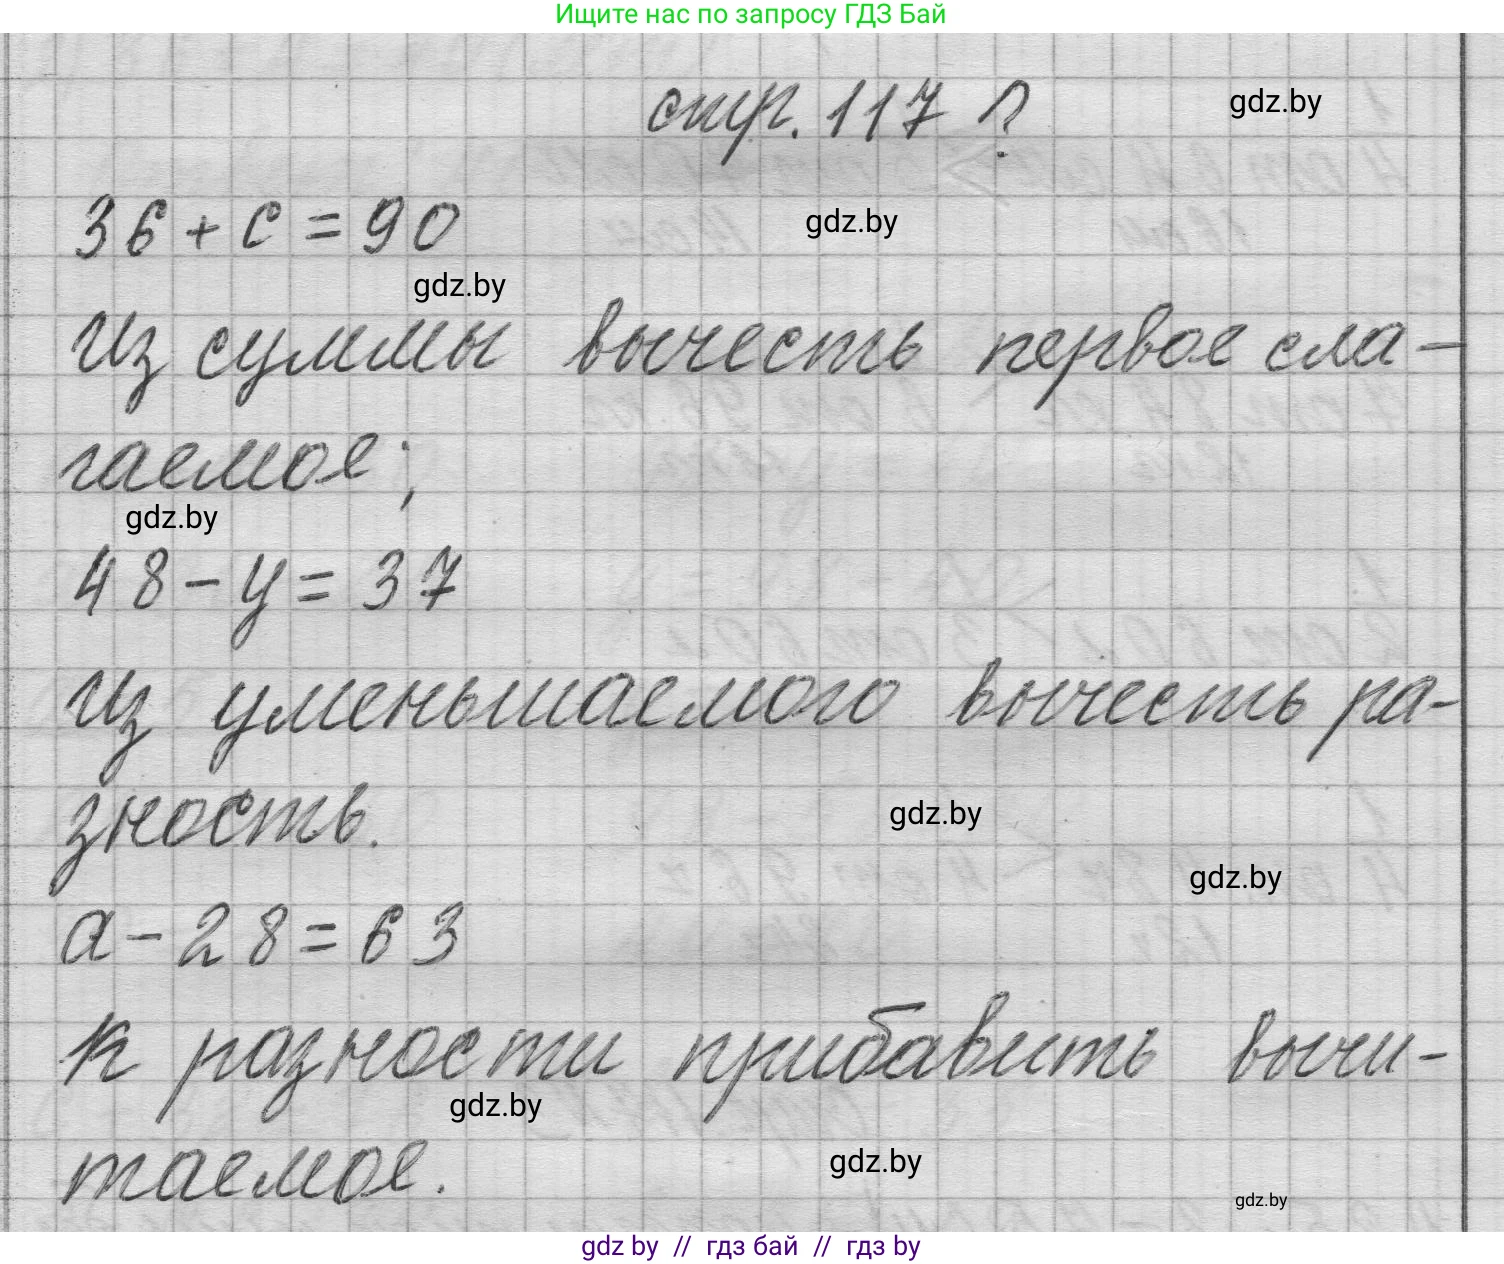 Ищите нас по запросу ГДЗ Бай
стр. 117 ?
gdz.by
36 + c = 90
gdz.by
gdz.by
Из суммы вычесть первое сла-
гаемое;
gdz.by
48 - y = 37
Из уменьшаемого вычесть ра-
зность.
gdz.by
gdz.by
a - 28 = 63
К разности прибавить вычи-
gdz.by
таемое.
gdz.by
gdz.by
gdz by // гдз бай // гдз by